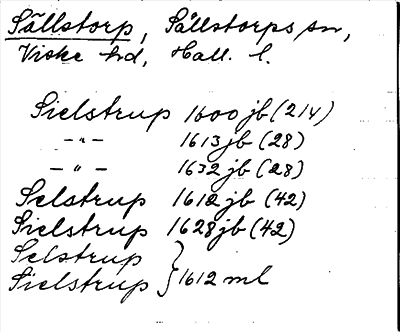 Sällstorp, Sällstorps sn,
Viske hd, Hall. l.
Sielstrup 1600 jb (214)
—„— 1613 jb (28)
—„— 1632 jb (28)
Selstrup 1612 jb (42)
Sielstrup 1628 jb (42)
Selstrup }
Sielstrup } 1612 ml